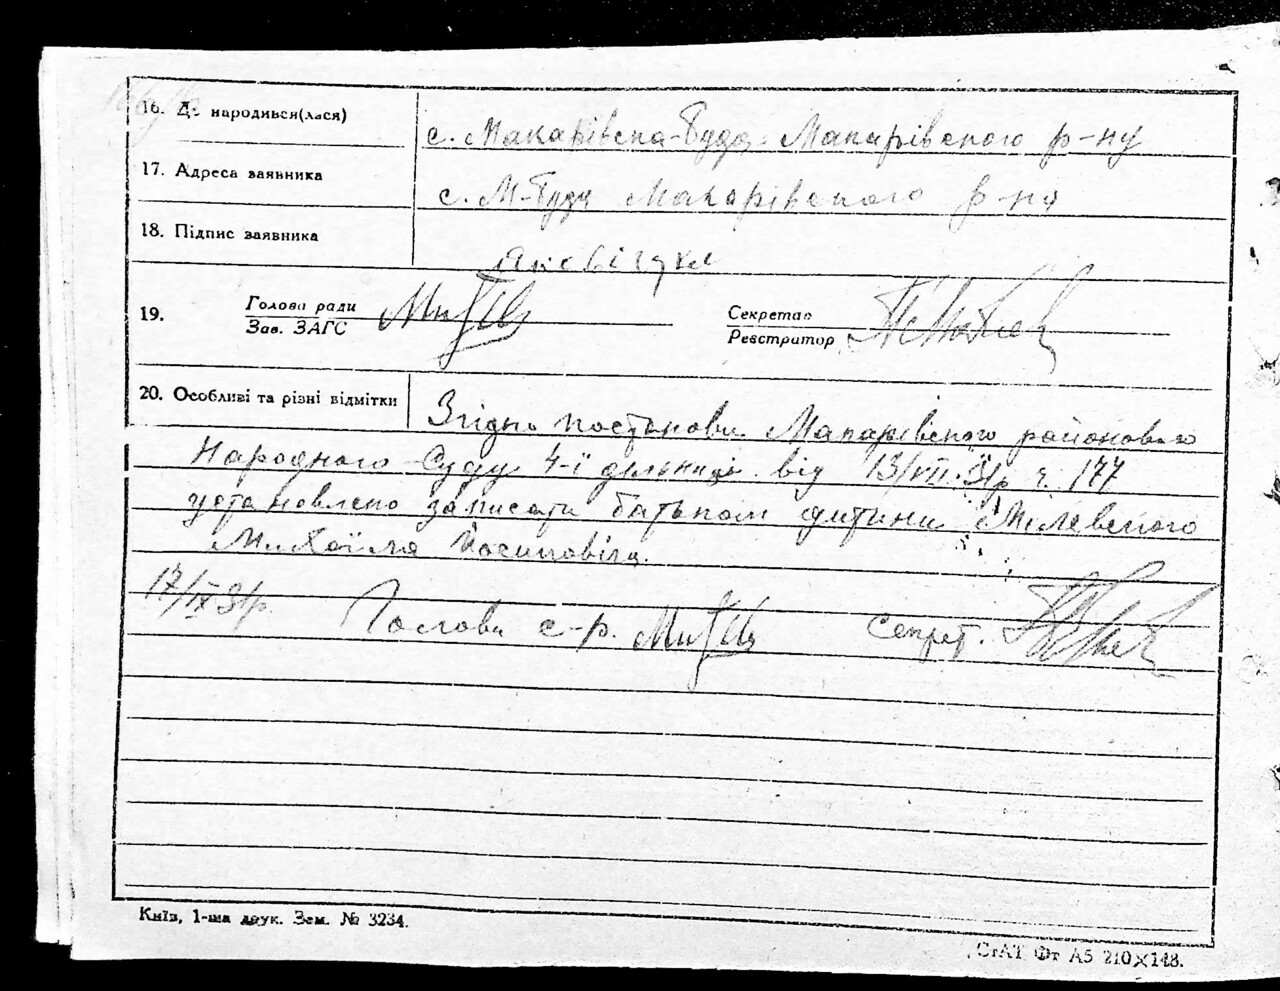 16. Де народився(лася) с. Макарівська-Буда Макарівського р-ну
17. Адреса заявника с. М-Буда Макарівського р-на
18. Підпис заявника
19. Голова ради
Зав. ЗАГС
Секретар
Реєстратор
20. Особливі та різні відмітки Згідно постанови Макарівского районового
Народного Суду 4-ї дільниці від 13/VII 31р ч. 177
установлено записати батьком дитини Мілевского
Михайла Йосиповіча.
17/IX 31р. Голова с-р. Секрет.
Київ, 1-ша друк. Зам. № 3234.
СтАТ Фт А5 210×148.